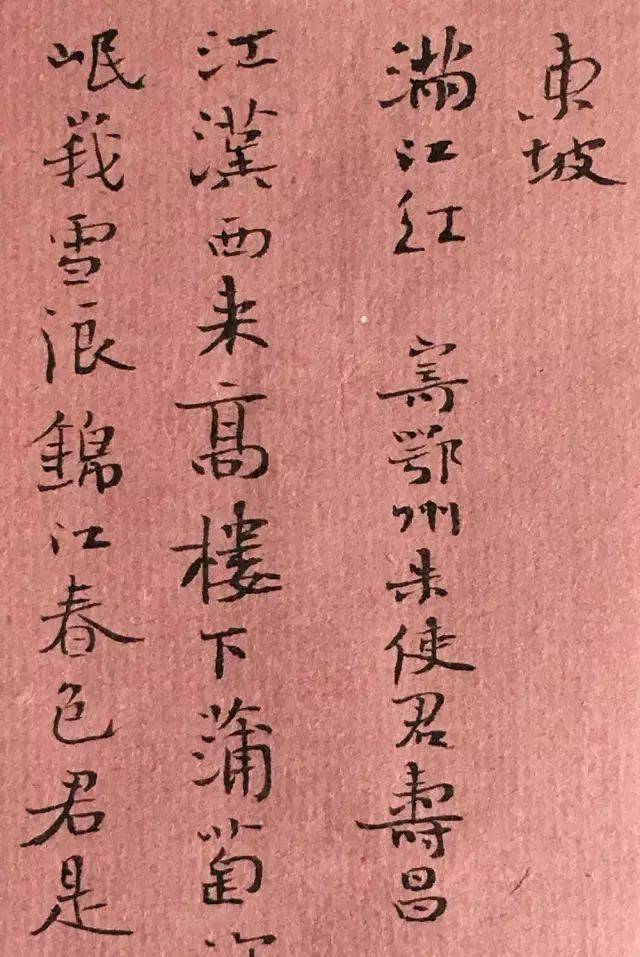 東坡
滿江紅 寄鄂州朱使君壽昌
江漢西来髙樓下蒲萄
岷峩雪浪錦江春色君是